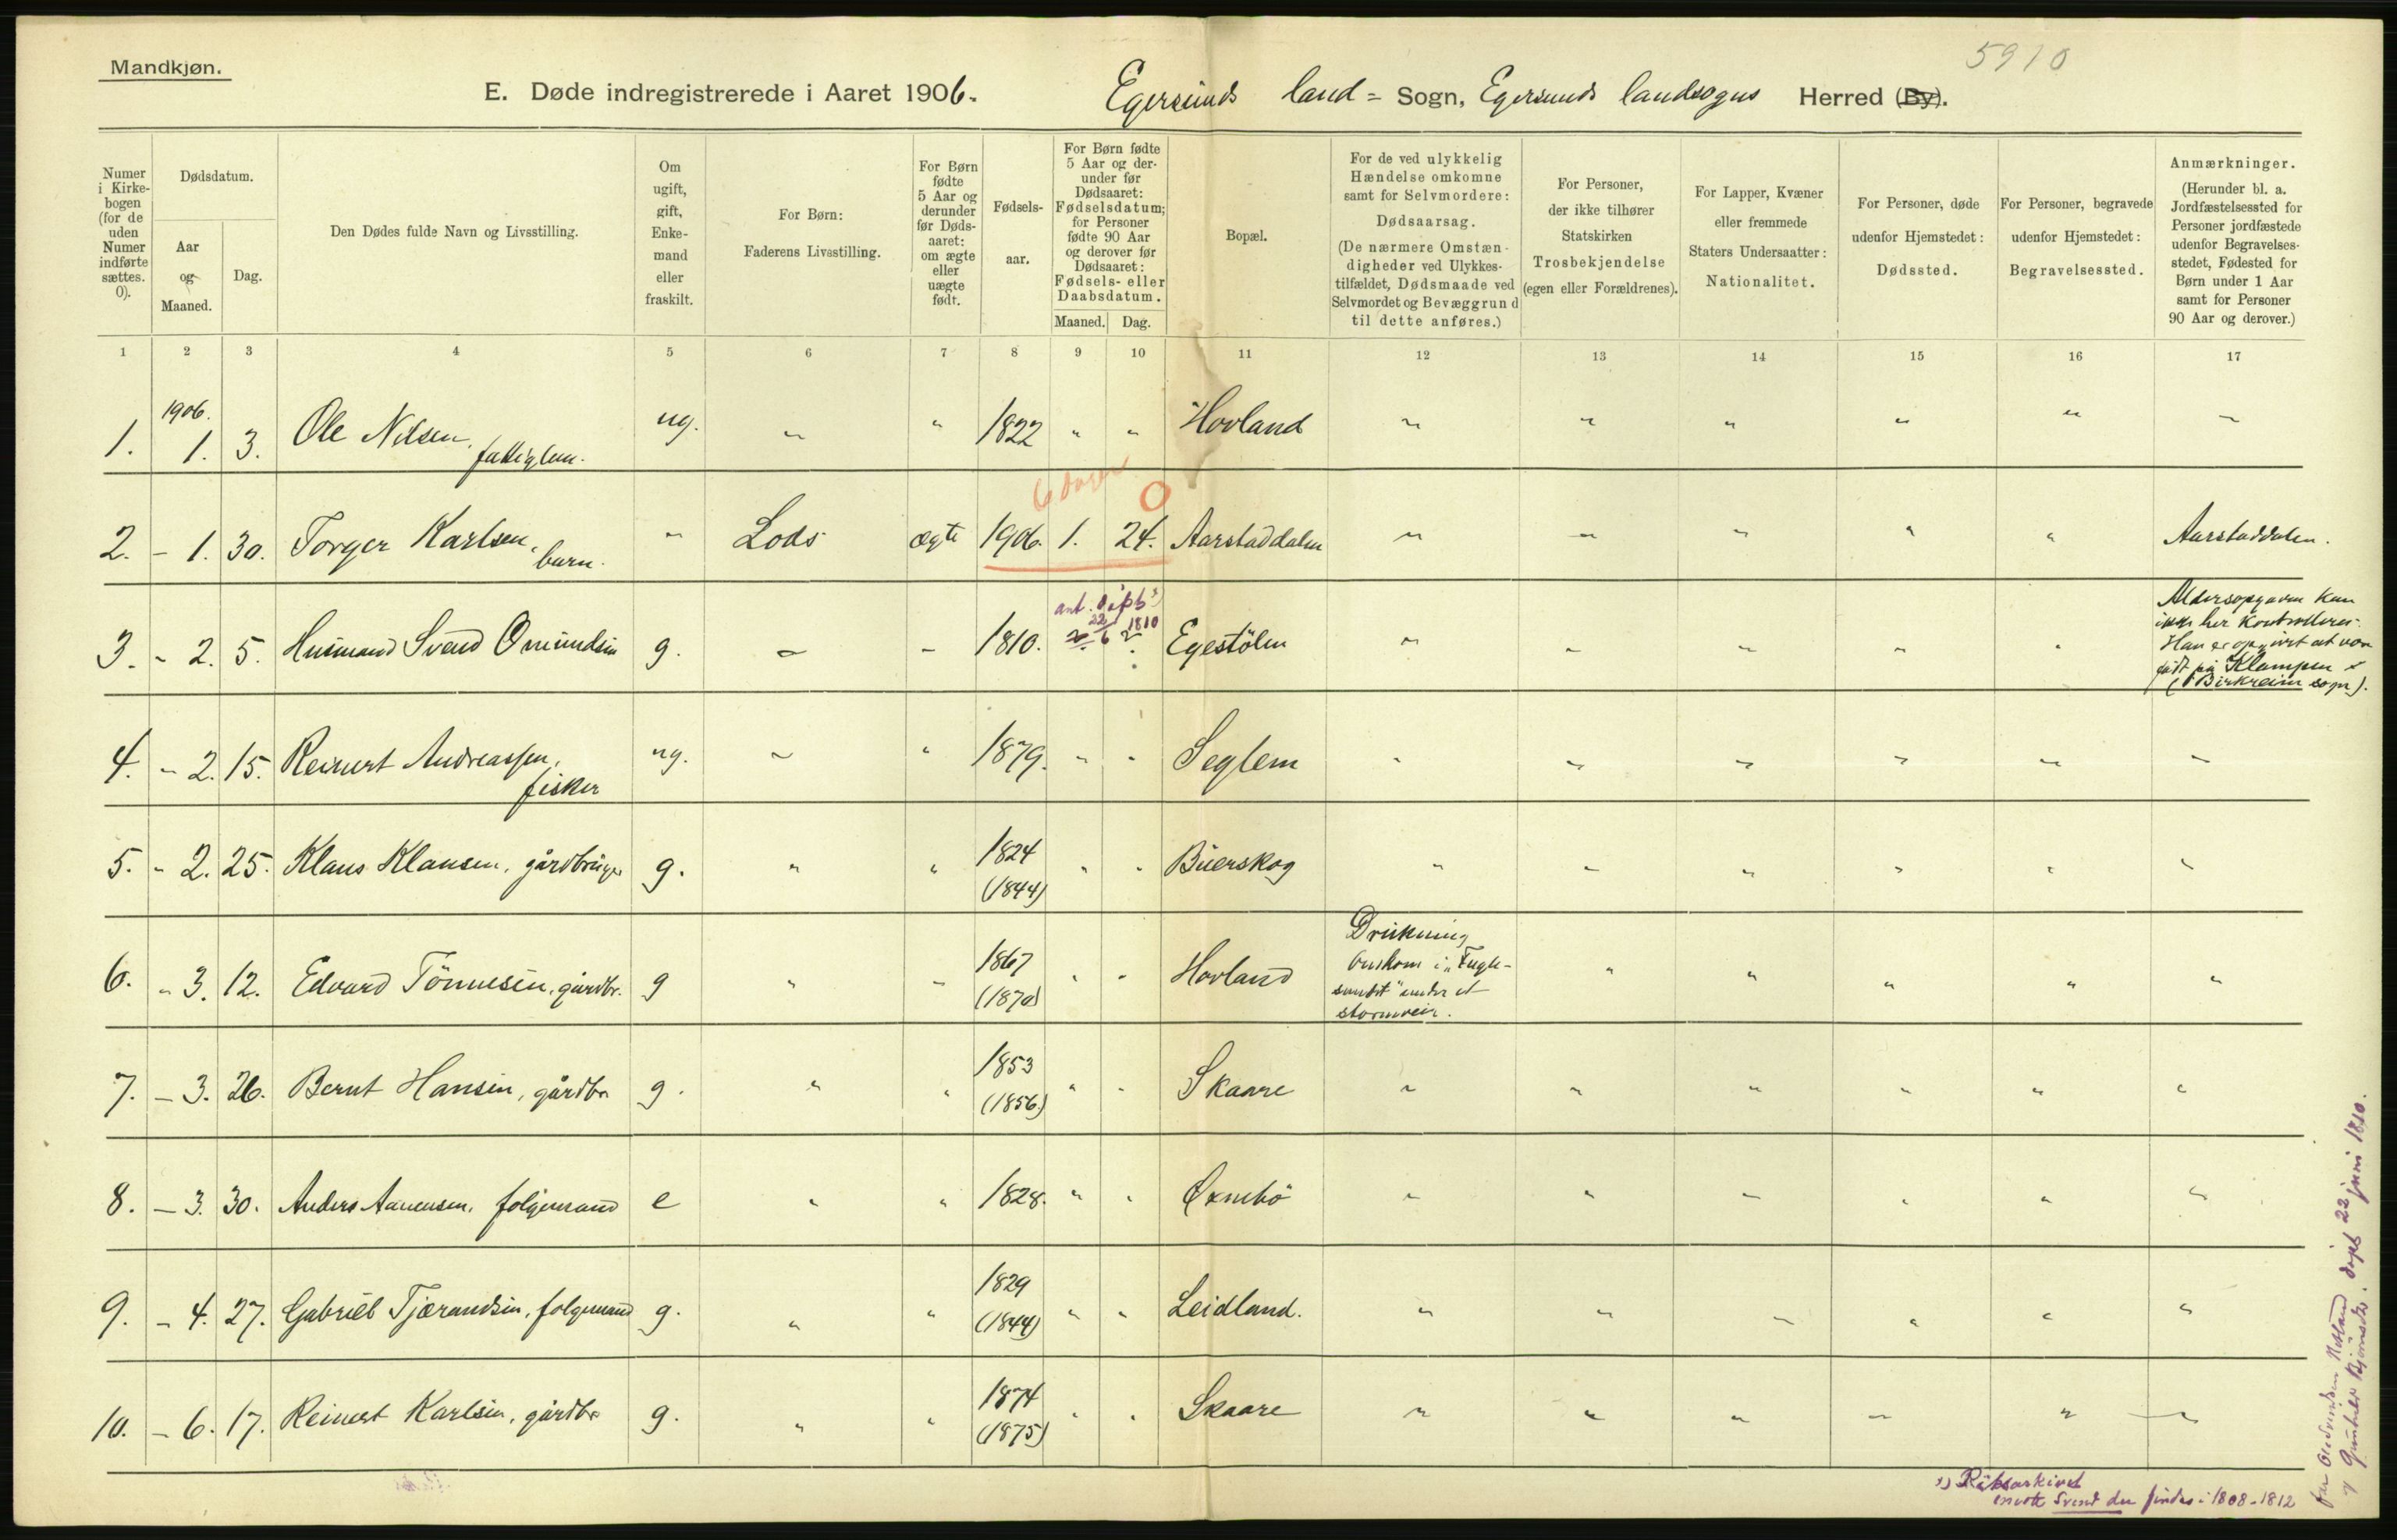 5910
Mandkjøn.
E. Døde indregistrerede i Aaret 1906. Egersunds land= Sogn, Egersunds landsogns Herred (By).
Numer i Kirke-bogen (for de uden Numer indførte sættes. 0).
Dødsdatum.
Aar og Maaned.
Dag.
Den Dødes fulde Navn og Livsstilling.
Om ugift, gift, Enke-mand eller fraskilt.
For Børn: Faderens Livsstilling.
For Børn fødte 5 Aar og derunder før Døds-aaret: om ægte eller uægte født.
Fødsels-aar.
For Børn fødte 5 Aar og der-under før Dødsaaret: Fødselsdatum; for Personer fødte 90 Aar og derover før Dødsaaret: Fødsels- eller Daabsdatum.
Maaned. Dag.
Bopæl.
For de ved ulykkelig Hændelse omkomne samt for Selvmordere: Dødsaarsag. (De nærmere Omstæn-digheder ved Ulykkes-tilfældet, Dødsmaade ved Selvmordet og Bevæggrund til dette anføres.)
For Personer, der ikke tilhører Statskirken Trosbekjendelse (egen eller Forældrenes).
For Lapper, Kvæner eller fremmede Staters Undersaatter: Nationalitet.
For Personer, døde udenfor Hjemstedet: Dødssted.
For Personer, begravede udenfor Hjemstedet: Begravelsessted.
Anmærkninger. (Herunder bl. a. Jordfæstelsessted for Personer jordfæstede udenfor Begravelses-stedet, Fødested for Børn under 1 Aar samt for Personer 90 Aar og derover.)
1 2 3 4 5 6 7 8 9 10 11 12 13 14 15 16 17
1906.
1. 1. 3. Ole Nilsen, fattiglem. ug. " " 1822 " " Hovland " " " " " "
6 dager 0
2. - 1. 30. Torger Karlsen, barn. " Lods ægte 1906. 1. 24. Aarstaddalen " " " " " Aarstaddalen.
ant. døpt x) 22/6 1810
3. - 2. 5. Husmand Svend Omundsen g. " " 1810. 2 2 Egestölen " " " " "
Aldersopgaven kan
ikke her kontrolleres.
Han er opgivet at være
født på Klampen
(i Birkreim sogn).
4. - 2. 15. Reinert Andreassen, fisker ug. " " 1879. " " Seglem " " " " " "
5. - 2. 25. Klaus Klausen, gårdbruger g. " " 1824 (1844) " " Buerskog " " " " " "
6. - 3. 12. Edvard Tönnesen, gårdbr. g " " 1867 (1870) " " Hovland
Drukning
Omkom i "Fugle-
sundet" under et
stormveir.
" " " " "
7. - 3. 26. Bernt Hansen, gårdbr g. " " 1853 (1856) " " Skaare " " " " " "
8. - 3. 30. Anders Aanensen, folgemand e " " 1828. " " Øxnebö " " " " " "
9. - 4. 27. Gabriel Tjærandsen, folgemand g. " " 1829 (1844) " " Leidland. " " " " " "
10. - 6. 17. Reinert Karlsen, gårdbr g. " " 1874 (1875) " " Skaare " " " " " "
x) Riksarkivet
eneste Svend der findes i 1808-1812
far Ole Svendsen døpt 22 juni 1810.